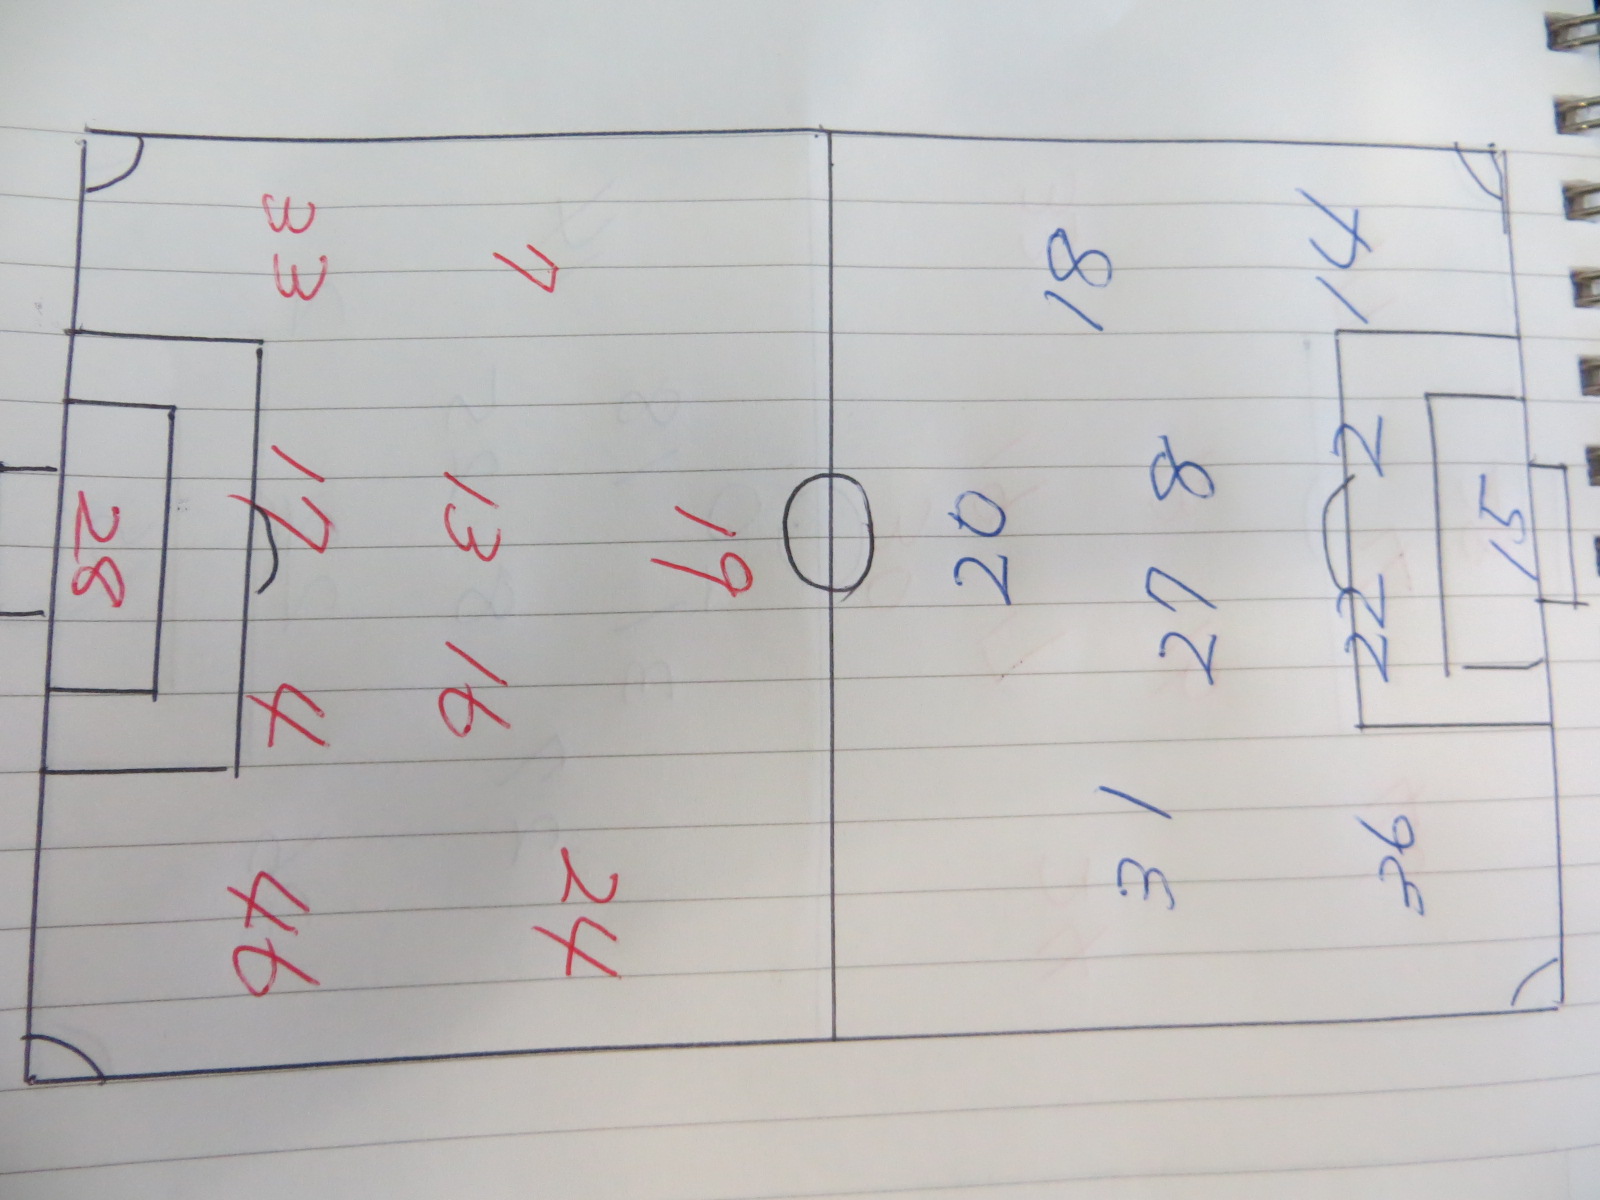 28
33
17
4
46
13
16
7
24
19
20
18
8
27
31
14
2
22
36
15